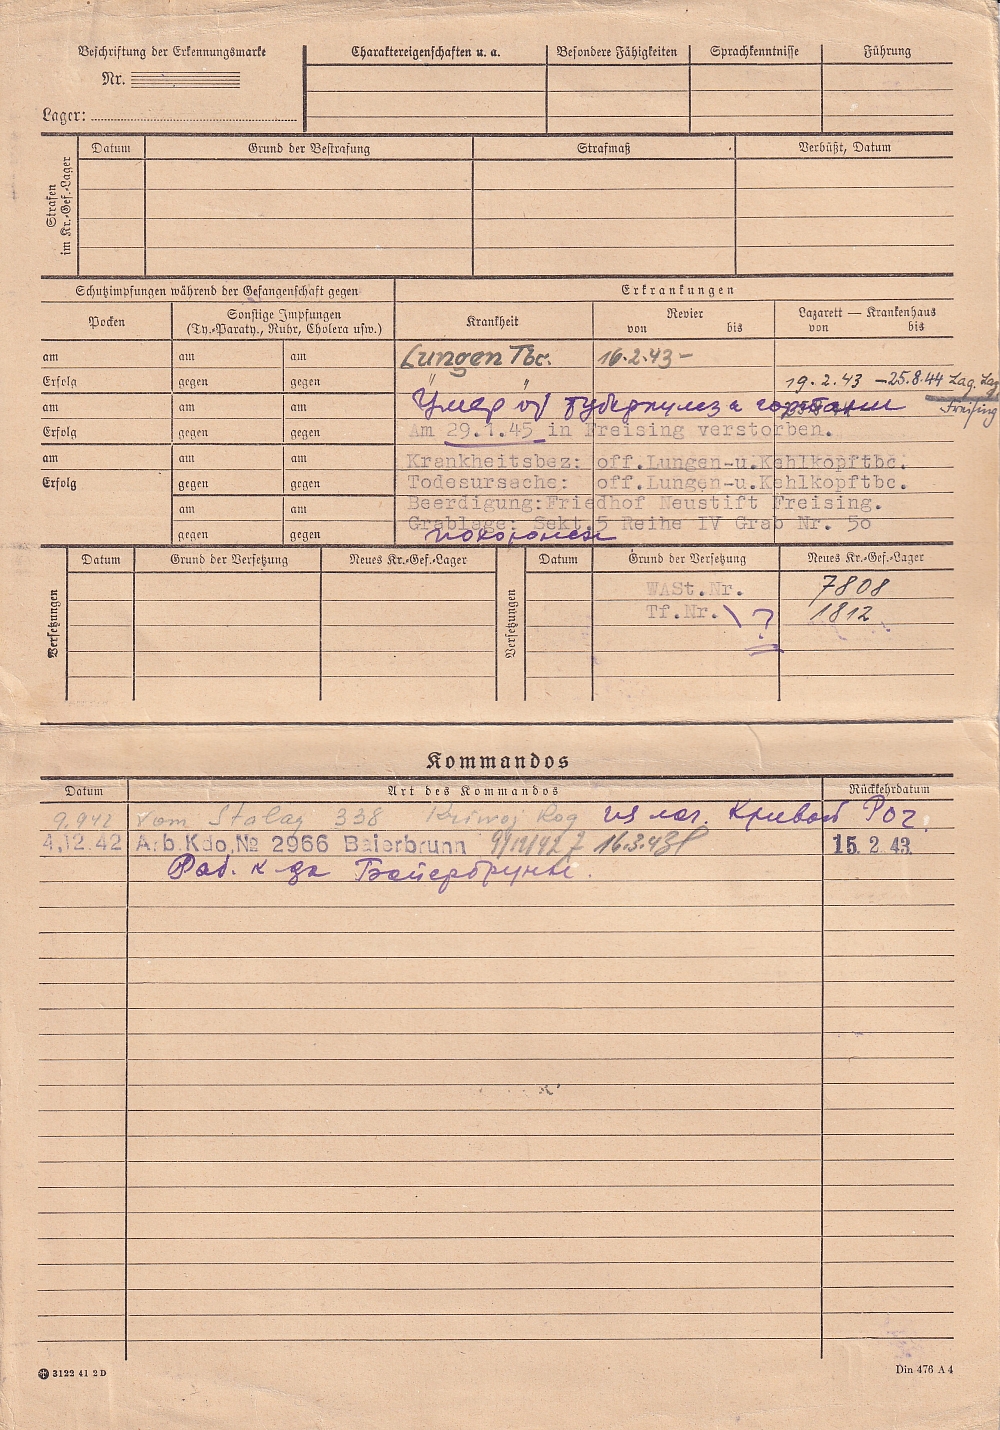 Beschriftung der Erkennungsmarke
Nr.
Lager:
Charaktereigenschaften u. a.
Besondere Fähigkeiten
Sprachkenntnisse
Führung
Strafen im Kr.-Gef.-Lager
Datum
Grund der Bestrafung
Strafmaß
Verbüßt, Datum
Schutzimpfungen während der Gefangenschaft gegen
Erkrankungen
Pocken
Sonstige Impfungen
(Ty.-Paraty., Ruhr, Cholera usw.)
Krankheit
Revier
von bis
Lazarett — Krankenhaus
von bis
am am am
Lungen Tbc. 16.2.43 –
Erfolg gegen gegen
" " 19.2.43 – 25.8.44 Lag. Laz
Freising
am am am
Умер от туберкулеза гортани
Erfolg gegen gegen
Am 29.1.45 in Freising verstorben.
am am am
Krankheitsbez: off.Lungen-u.Kehlkopftbc.
Erfolg gegen gegen
Todesursache: off.Lungen-u.Kehlkopftbc.
am am
Beerdigung:Friedhof Neustift Freising.
Grablage: Sekt.5 Reihe IV Grab Nr. 50
gegen gegen
похоронен
Versetzungen
Datum
Grund der Versetzung
Neues Kr.-Gef.-Lager
Versetzungen
Datum
Grund der Versetzung
Neues Kr.-Gef.-Lager
WASt.Nr. 7808
Tf.Nr. \ ? 1812
Kommandos
Datum
Art des Kommandos
Rückkehrdatum
9.942 vom Stalag 338 Kriwoj Rog из лаг. Кривой Рог.
4.12.42 Arb.Kdo.№ 2966 Baierbrunn 9/12/42 16.3.43 15.2.43
Раб. к-да Байербрунн.
3122 41 2 D
Din 476 A 4